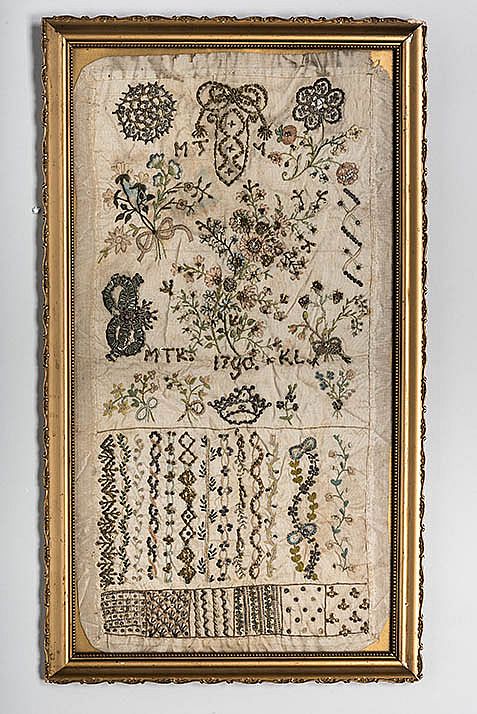 M T M
MTK. 1790. KL.